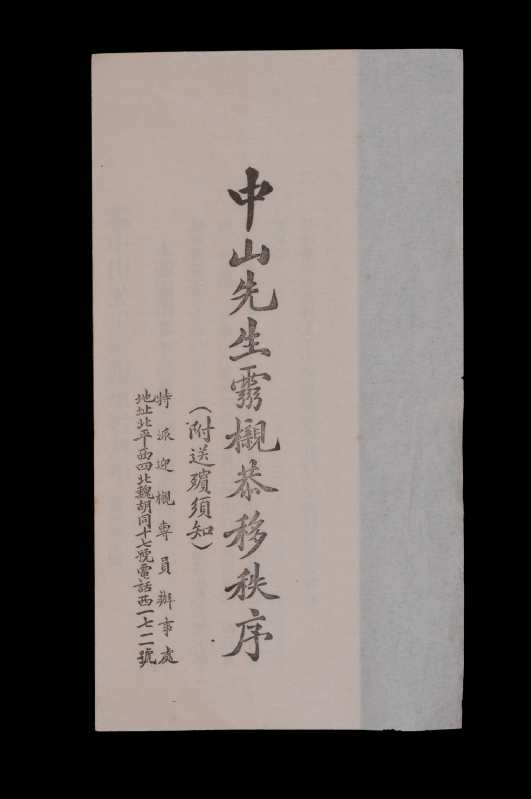 中山先生靈櫬恭移秩序
（附送殯須知）
特派迎櫬專員辦事處
地址北平西四北魏胡同十七號電話西一七二號